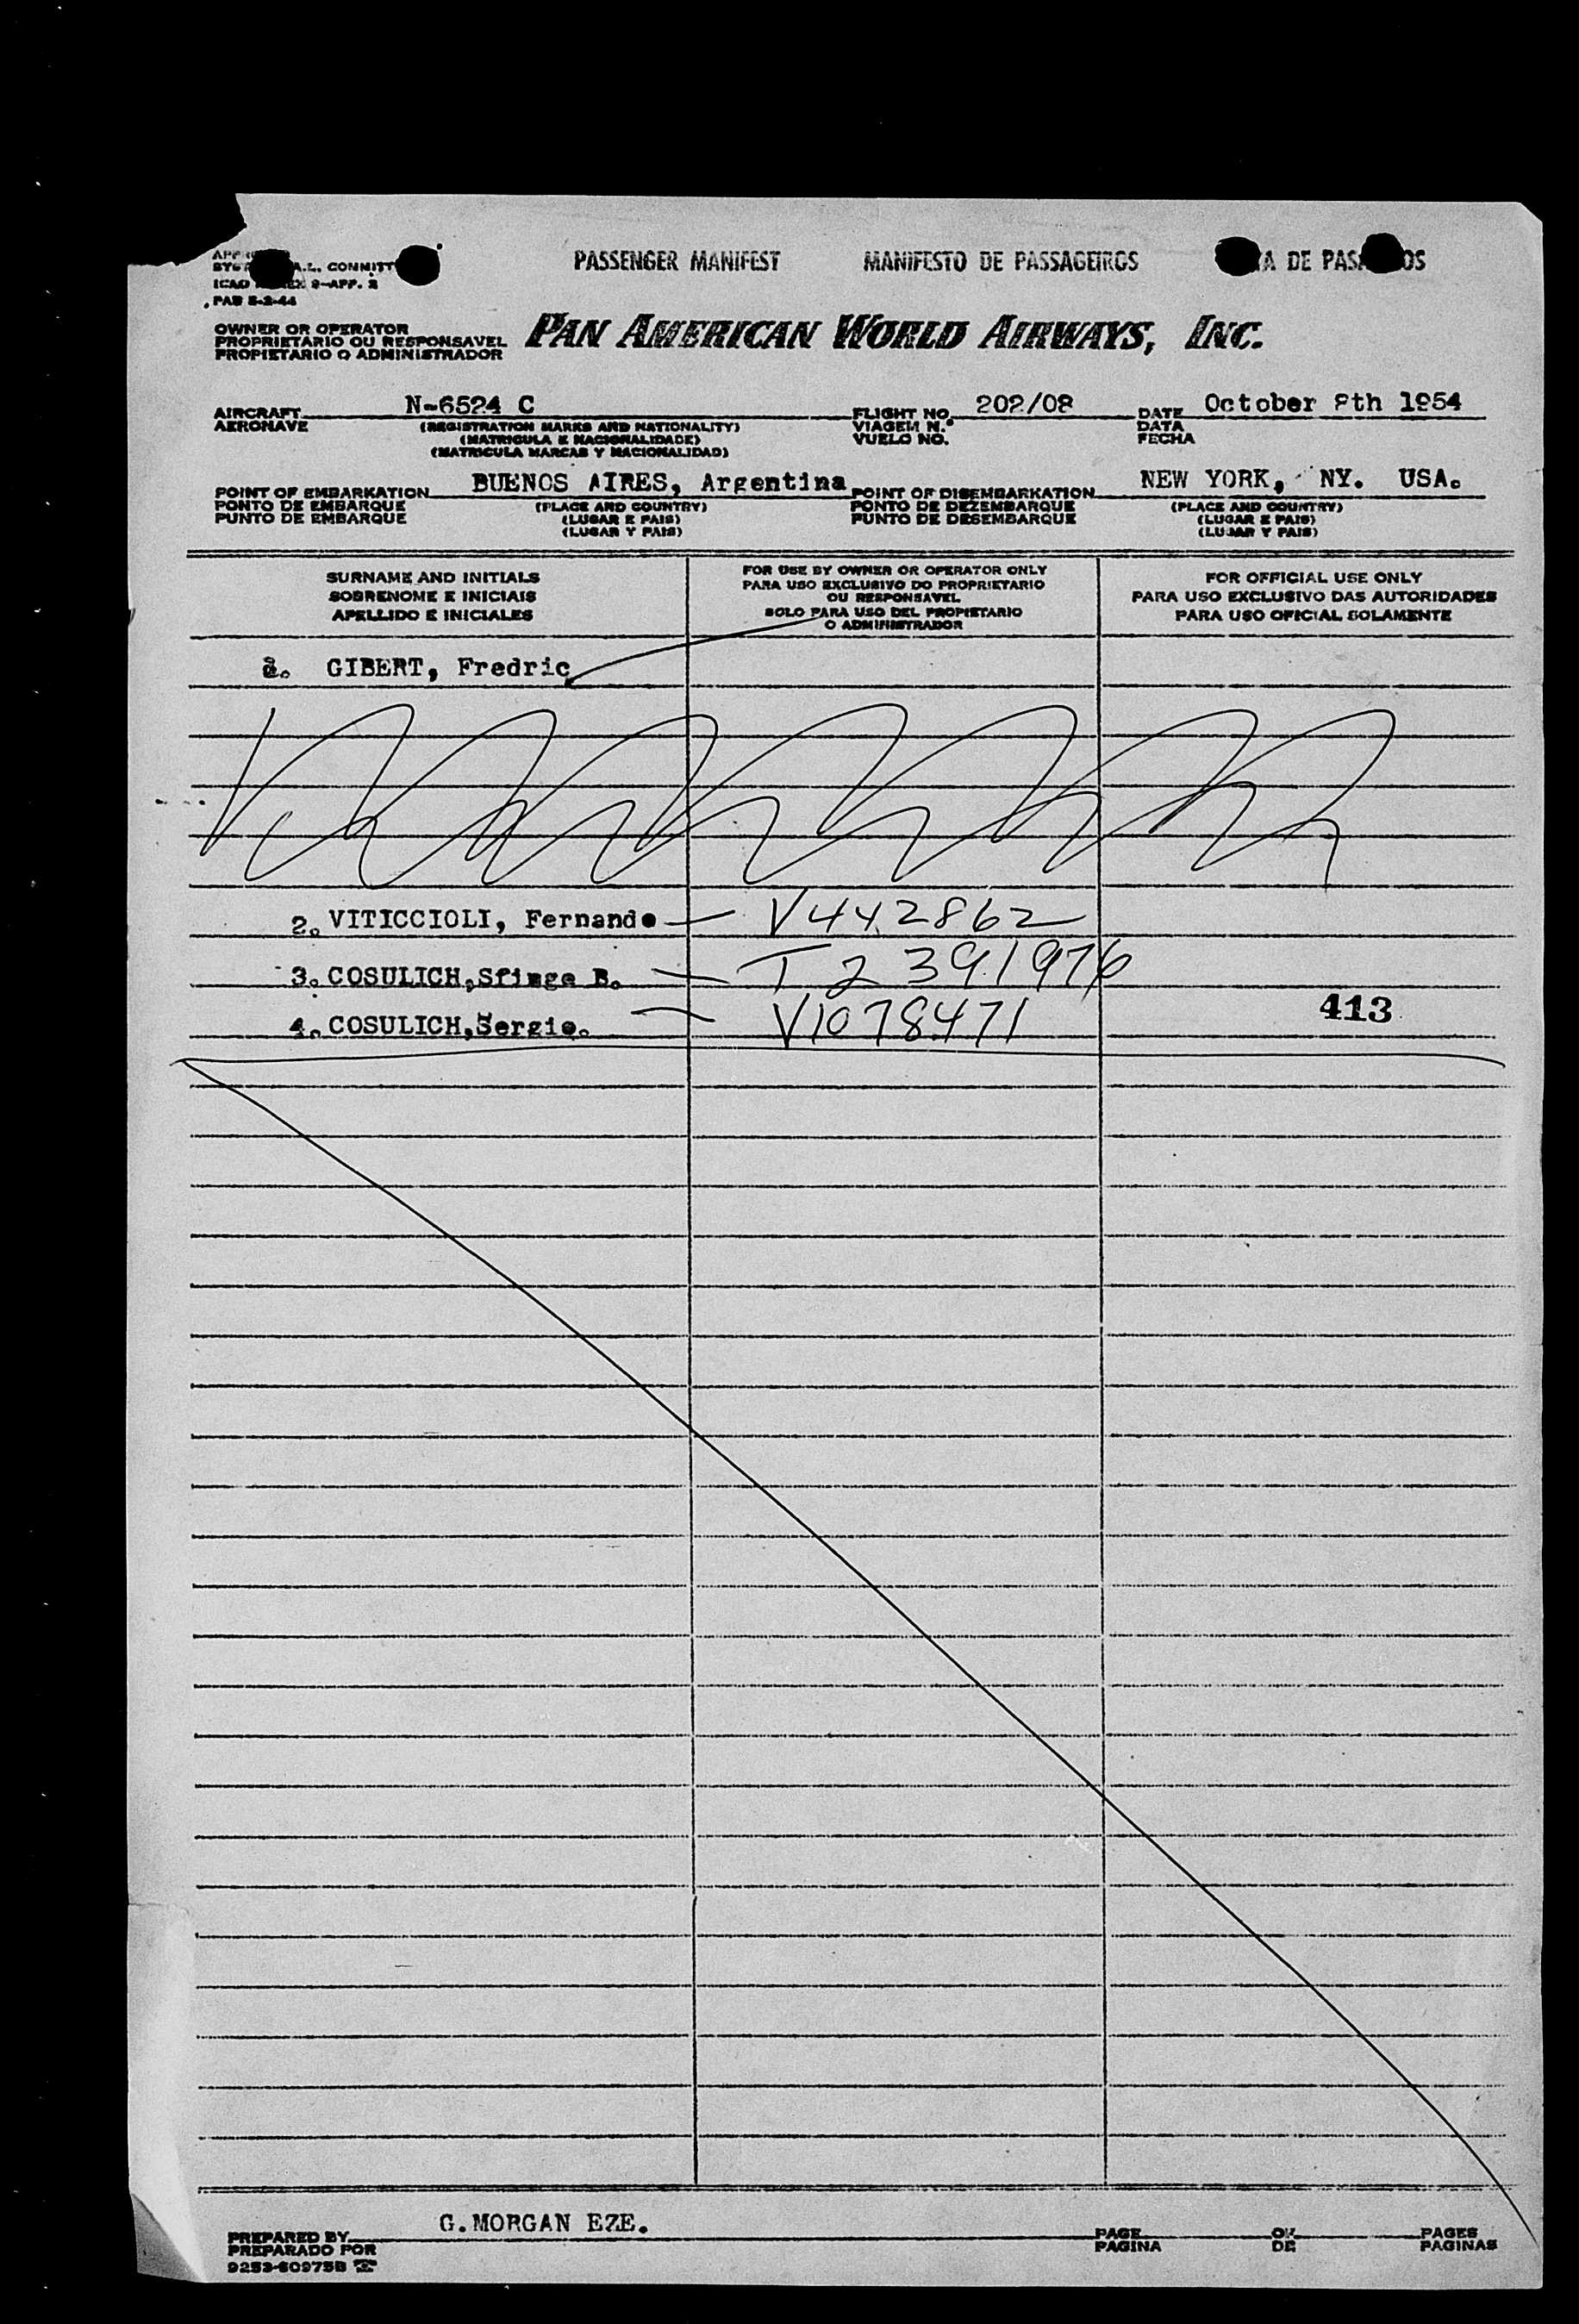 PASSENGER MANIFEST MANIFESTO DE PASSAGEIROS DE
A.L. COMMITT
ICAO 9-APP. 2
PAB 5-2-44
OWNER OR OPERATOR
PROPRIETARIO OU RESPONSAVEL
PROPIETARIO O ADMINISTRADOR
PAN AMERICAN WORLD AIRWAYS, INC.
AIRCRAFT N-6524 C FLIGHT NO. 202/08 DATE October 8th 1954
AERONAVE (REGISTRATION MARKS AND NATIONALITY) VIAGEM N.º DATA
(MATRICULA E NACIONALIDADE) VUELO NO. FECHA
(MATRICULA MARCAS Y NACIONALIDAD)
POINT OF EMBARKATION BUENOS AIRES, Argentina POINT OF DISEMBARKATION NEW YORK, NY. USA.
PONTO DE EMBARQUE (PLACE AND COUNTRY) PONTO DE DEZEMBARQUE (PLACE AND COUNTRY)
PUNTO DE EMBARQUE (LUGAR E PAIS) PUNTO DE DESEMBARQUE (LUGAR E PAIS)
(LUGAR Y PAIS) (LUGAR Y PAIS)
SURNAME AND INITIALS
SOBRENOME E INICIAIS
APELLIDO E INICIALES
FOR USE BY OWNER OR OPERATOR ONLY
PARA USO EXCLUSIVO DO PROPRIETARIO
OU RESPONSAVEL
SOLO PARA USO DEL PROPIETARIO
O ADMINISTRADOR
FOR OFFICIAL USE ONLY
PARA USO EXCLUSIVO DAS AUTORIDADES
PARA USO OFICIAL SOLAMENTE
GIBERT, Fredric
2. VITICCIOLI, Fernando — V442862
3. COSULICH,Sfinge B. — T 2 391976
4. COSULICH,Sergio. — V1078471
413
PREPARED BY G.MORGAN EZE. PAGE OF PAGES
PREPARADO POR PAGINA DE PAGINAS
9253-60975B